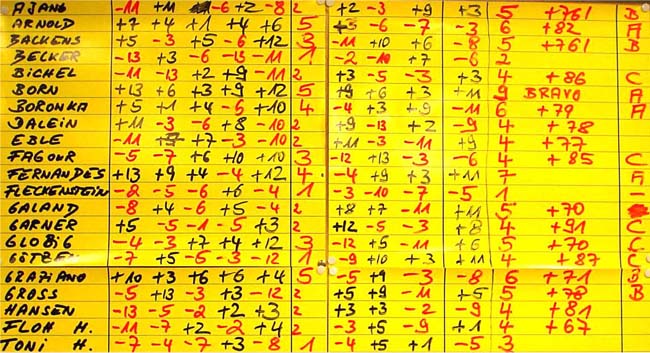 AJANG -11 +11 -6 +2 -8 2 +2 -3 +9 +3 5 +761 B
ARNOLD +7 +4 +1 +4 +6 5 -6 -7 -3 6 +82 A
BACKENS +5 -3 +5 -6 +12 3 -11 +10 +6 -8 5 +761 B
BECKER -13 +3 -6 -13 -11 1 -2 -10 +7 -6 2
BICHEL -11 -13 +2 +9 -11 2 +3 -5 -3 +3 4 +86 C
BORN +13 +6 +3 +9 +12 5 +9 +6 +3 +11 9 BRAVO A
BORONKA +5 +1 +4 -6 +10 4 -4 +3 +9 -11 6 +79 A
DALEIN +11 -3 -6 +8 -10 2 +9 -13 +2 -9 4 +78
EBLE -11 +7 -3 -10 2 +11 -3 -11 +9 4 +77
FAGOUR -5 -7 +6 +10 +10 3 -12 +13 -3 -6 4 +85 C
FERNANDES +13 +9 +4 -4 +12 4 -4 +9 +3 +11 7 A
FLECKENSTEIN -2 -5 -6 +6 -4 1 -3 -10 -7 -5 1 -
GALAND -8 +4 -6 +5 -4 2 +8 +7 -11 +11 5 +70
GARNER +5 -5 -1 -5 +3 2 +12 -5 -3 +8 4 +91 C
GLOBIG -4 -3 +7 +4 +12 3 -12 +5 -11 +6 5 +70 C
-7 +5 -5 -3 -12 1 -9 +10 +3 +11 4 +87 C
GRAZIANO +10 +3 +6 +6 +4 5 -5 +9 -3 -8 6 +71 B
GROSS -5 +13 -3 +3 -12 2 +5 +9 -11 +5 5 +78 B
HANSEN -13 -5 -2 +2 +3 2 +3 +3 -2 -9 4 +81
FLOH H. -11 -7 +2 -2 +4 2 -3 +5 -9 +1 4 +67
TONI H. -7 -4 -7 +3 -8 1 -4 +5 +1 -5 3